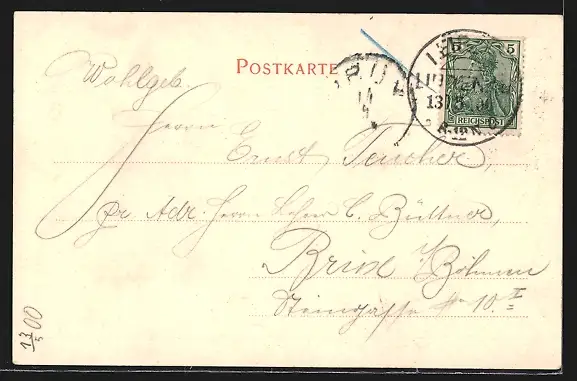 POSTKARTE
5 5
REICHSPOST
Wohlgeb.
Herrn
Ernst Teucher,
pr. Adr. Herrn C. Büttner,
Brüx i/Böhmen
Steingasse № 10. I
13/5 00